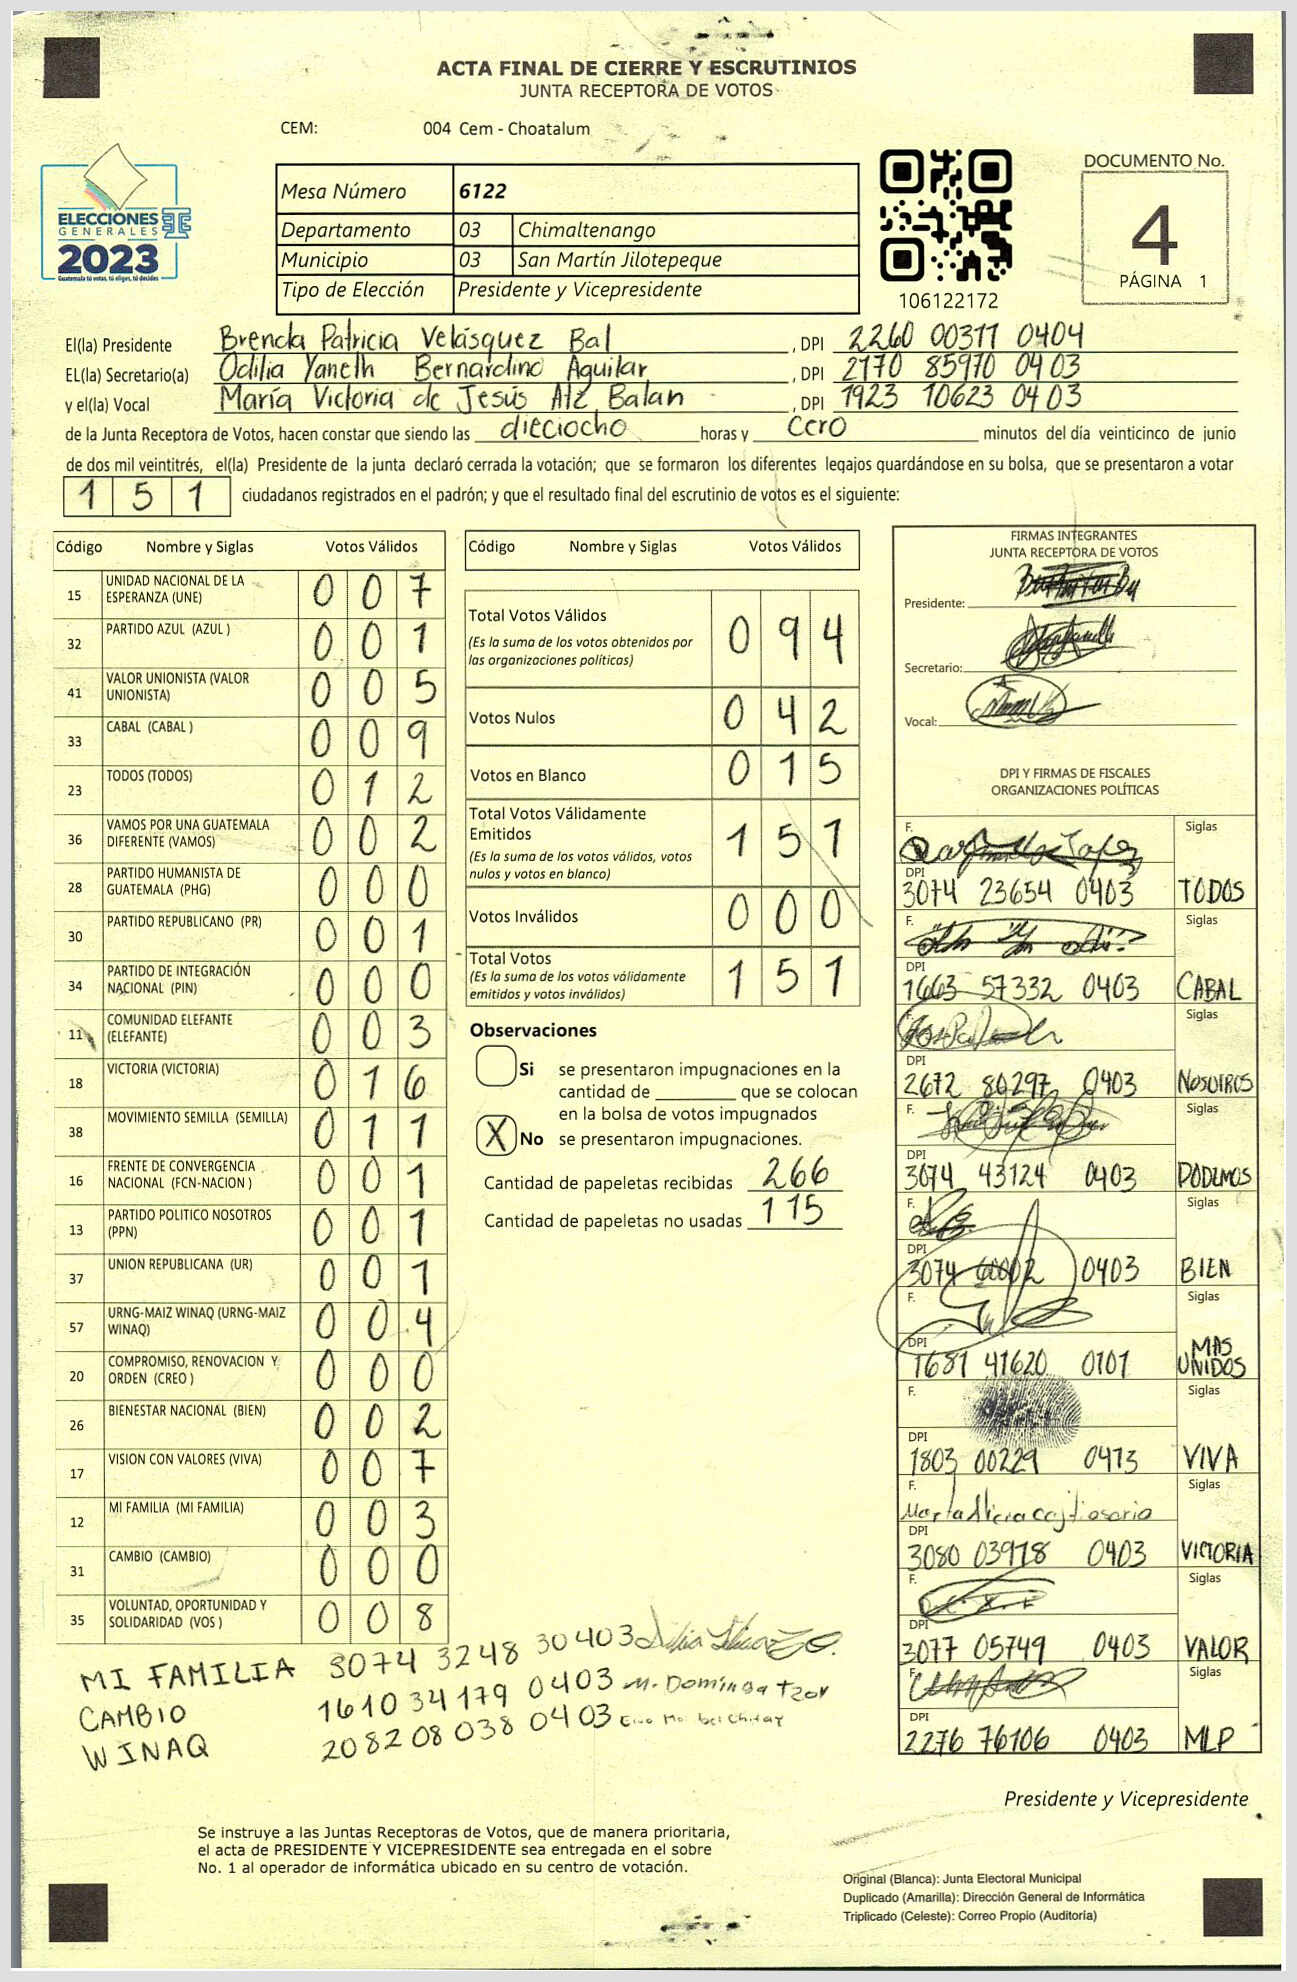 ACTA FINAL DE CIERRE Y ESCRUTINIOS
JUNTA RECEPTORA DE VOTOS
CEM: 004 Cem - Choatalum
ELECCIONES
GENERALES
2023
Guatemala tú votas, tú eliges, tú decides
Mesa Número 6122
Departamento 03 Chimaltenango
Municipio 03 San Martín Jilotepeque
Tipo de Elección Presidente y Vicepresidente
106122172
DOCUMENTO No.
4
PÁGINA 1
El(la) Presidente Brenda Patricia Velásquez Bal , DPI 2260 00311 0404
EL(la) Secretario(a) Odilia Yaneth Bernardino Aguilar , DPI 2170 85970 0403
y el(la) Vocal María Victoria de Jesús Atz Balan , DPI 1923 10623 0403
de la Junta Receptora de Votos, hacen constar que siendo las dieciocho horas y cero minutos del día veinticinco de junio
de dos mil veintitrés, el(la) Presidente de la junta declaró cerrada la votación; que se formaron los diferentes legajos guardándose en su bolsa, que se presentaron a votar
151 ciudadanos registrados en el padrón; y que el resultado final del escrutinio de votos es el siguiente:
Código Nombre y Siglas Votos Válidos
15 UNIDAD NACIONAL DE LA ESPERANZA (UNE) 007
32 PARTIDO AZUL (AZUL ) 001
41 VALOR UNIONISTA (VALOR UNIONISTA) 005
33 CABAL (CABAL ) 009
23 TODOS (TODOS) 012
36 VAMOS POR UNA GUATEMALA DIFERENTE (VAMOS) 002
28 PARTIDO HUMANISTA DE GUATEMALA (PHG) 000
30 PARTIDO REPUBLICANO (PR) 001
34 PARTIDO DE INTEGRACIÓN NACIONAL (PIN) 000
11 COMUNIDAD ELEFANTE (ELEFANTE) 003
18 VICTORIA (VICTORIA) 016
38 MOVIMIENTO SEMILLA (SEMILLA) 011
16 FRENTE DE CONVERGENCIA NACIONAL (FCN-NACION ) 001
13 PARTIDO POLITICO NOSOTROS (PPN) 001
37 UNION REPUBLICANA (UR) 001
57 URNG-MAIZ WINAQ (URNG-MAIZ WINAQ) 004
20 COMPROMISO, RENOVACION Y ORDEN (CREO ) 000
26 BIENESTAR NACIONAL (BIEN) 002
17 VISION CON VALORES (VIVA) 007
12 MI FAMILIA (MI FAMILIA) 003
31 CAMBIO (CAMBIO) 000
35 VOLUNTAD, OPORTUNIDAD Y SOLIDARIDAD (VOS ) 008
MI FAMILIA 3074 3248 30403
CAMBIO 1610 34179 0403 M. Dominga Tzov
WINAQ 2082 08 038 0403
Código Nombre y Siglas Votos Válidos
Total Votos Válidos 094
(Es la suma de los votos obtenidos por
las organizaciones políticas)
Votos Nulos 042
Votos en Blanco 015
Total Votos Válidamente
Emitidos 151
(Es la suma de los votos válidos, votos
nulos y votos en blanco)
Votos Inválidos 000
Total Votos 151
(Es la suma de los votos válidamente
emitidos y votos inválidos)
Observaciones
Si se presentaron impugnaciones en la
cantidad de ________ que se colocan
en la bolsa de votos impugnados
X No se presentaron impugnaciones.
Cantidad de papeletas recibidas 266
Cantidad de papeletas no usadas 115
FIRMAS INTEGRANTES
JUNTA RECEPTORA DE VOTOS
Presidente:
Secretario:
Vocal:
DPI Y FIRMAS DE FISCALES
ORGANIZACIONES POLÍTICAS
F. Siglas
DPI
3074 23654 0403 TODOS
F. Siglas
DPI
1663 57332 0403 CABAL
F. Siglas
DPI
2672 80297 0403 NOSOTROS
F. Siglas
DPI
3074 43124 0403 PODEMOS
F. Siglas
DPI
3074 60002 0403 BIEN
F. Siglas
DPI
1681 41620 0101 MAS UNIDOS
F. Siglas
DPI
1803 00229 0413 VIVA
F. Siglas
Marta Alicia
DPI
3080 03978 0403 VICTORIA
F. Siglas
DPI
3077 05749 0403 VALOR
F. Siglas
DPI
2276 76106 0403 MLP
Presidente y Vicepresidente
Se instruye a las Juntas Receptoras de Votos, que de manera prioritaria,
el acta de PRESIDENTE Y VICEPRESIDENTE sea entregada en el sobre
No. 1 al operador de informática ubicado en su centro de votación.
Original (Blanca): Junta Electoral Municipal
Duplicado (Amarilla): Dirección General de Informática
Triplicado (Celeste): Correo Propio (Auditoría)